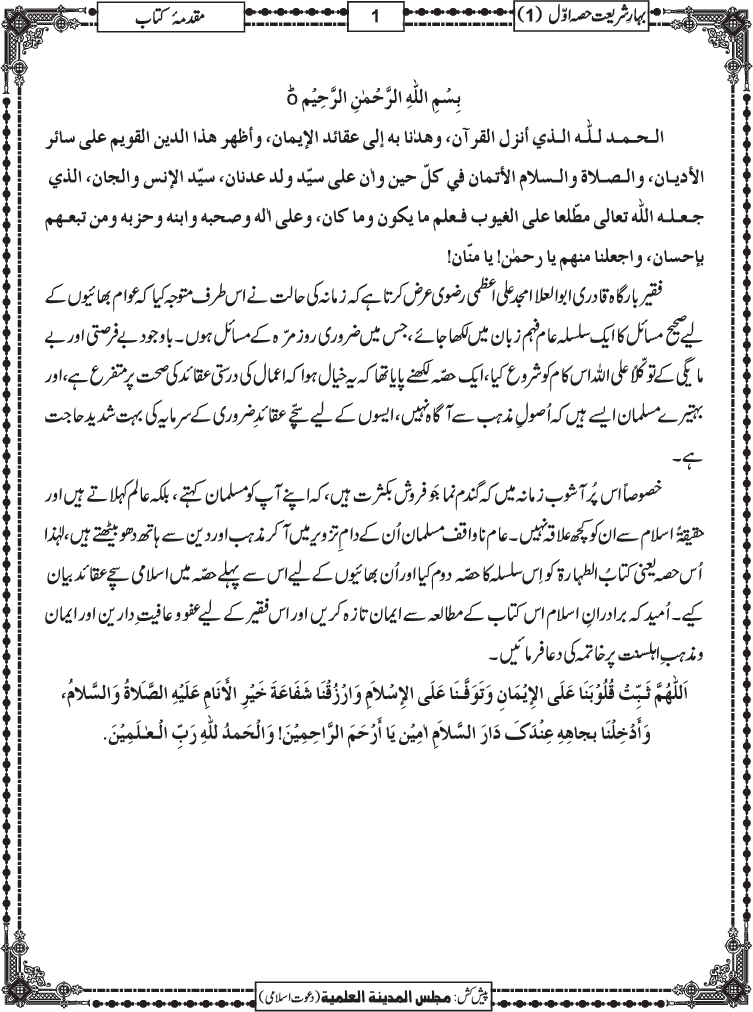 بہار شریعت حصہ اوّل (1)
1
مقدمۂ کتاب
بِسْمِ اللهِ الرَّحْمٰنِ الرَّحِيْمِ ط
الـحـمـد لـلّٰـه الـذي أنزل القرآن، وهدٰنا به إلى عقائد الإيمان، وأظهر هذا الدين القويم على سائر
الأديـان، والـصـلاة والـسـلام الأتمان في كلّ حين واٰن على سيّد ولد عدنان، سيّد الإنس والجان، الذي
جـعـلـه اللّٰه تعالى مطّلعا على الغيوب فـعلم ما يكون وما كان، وعلى اٰله وصحبه وابنه وحزبه ومن تبعـهـم
بإحسان، واجعلنا منهم يا رحمٰن! يا منّان!
فقیر بارگاہ قادری ابوالعلا امجد علی اعظمی رضوی عرض کرتا ہے کہ زمانہ کی حالت نے اس طرف متوجہ کیا کہ عوام بھائیوں کے
لیے صحیح مسائل کا ایک سلسلہ عام فہم زبان میں لکھا جائے، جس میں ضروری روز مرّہ کے مسائل ہوں۔ باوجود بے فرصتی اور بے
مایگی کے توکّلاً علی اللہ اس کام کو شروع کیا، ایک حصّہ لکھنے پایا تھا کہ یہ خیال ہوا کہ اعمال کی درستی عقائد کی صحت پر متفرع ہے، اور
بہتیرے مسلمان ایسے ہیں کہ اُصولِ مذہب سے آگاہ نہیں، ایسوں کے لیے سچّے عقائدِ ضروری کے سرمایہ کی بہت شدید حاجت
ہے۔
خصوصاً اس پُر آشوب زمانہ میں کہ گندم نما جَو فروش بکثرت ہیں، کہ اپنے آپ کو مسلمان کہتے، بلکہ عالم کہلاتے ہیں اور
حقیقۃً اسلام سے ان کو کچھ علاقہ نہیں۔ عام ناواقف مسلمان اُن کے دامِ تزویر میں آ کر مذہب اور دین سے ہاتھ دھو بیٹھتے ہیں، لہٰذا
اُس حصہ یعنی کتابُ الطہارۃ کو اِس سلسلہ کا حصّہ دوم کیا اور اُن بھائیوں کے لیے اس سے پہلے حصّہ میں اسلامی سچے عقائد بیان
کیے۔ اُمید کہ برادرانِ اسلام اس کتاب کے مطالعہ سے ایمان تازہ کریں اور اس فقیر کے لیے عفو و عافیتِ دارین اور ایمان
و مذہبِ اہلسنت پر خاتمہ کی دعا فرمائیں۔
اَللّٰهُمَّ ثَـبِّـتْ قُلُوْبَنَا عَلَى الْإِيْمَانِ وَتَوَفَّـنَا عَلَى الْإِسْلَامِ وَارْزُقْنَا شَفَاعَةَ خَيْرِ الْأَنَامِ عَلَيْهِ الصَّلَاةُ وَالسَّلَامُ،
وَأَدْخِلْنَا بجاهِهِ عِنْدَكَ دَارَ السَّلَامِ اٰمِيْنَ يَا أَرْحَمَ الرَّاحِمِيْنَ! وَالْحَمدُ للّٰهِ رَبِّ الْـعـٰلَـمِيْنَ.
پیش کش: مجلس المدینة العلمیة (دعوت اسلامی)